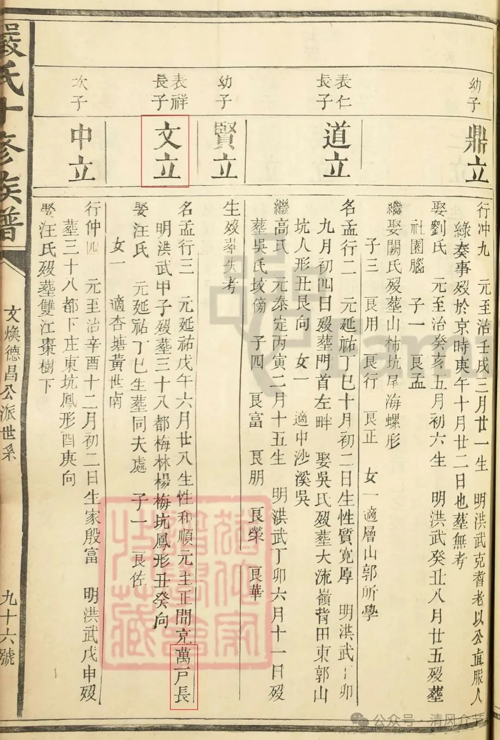 嚴氏十修族譜
文煥德昌公派世系
九十六號
幼子
鼎立
行冲九 元至治壬戌三月廿一生 明洪武克耆老以公直服人
緣奏事歿於京時庚午十月廿二日也葬無考
娶劉氏 元至治癸亥五月初六生 明洪武癸丑八月廿五歿葬
社園腦 子一 良孟
表仁
長子
道立
繼娶關氏歿葬山柿坑犀海螺形
子三 良用 良行 良正 女一適層山郭所學
名孟行二 元延祐丁巳十月初二日生性質寬厚 明洪武 卯
九月初四日歿葬門首左畔 娶吳氏歿葬大流嶺背田東郭山
坑人形丑艮向 女一 適中沙溪吳
繼高氏 元泰定丙寅二月十五生 明洪武丁卯六月十一日歿
葬吳氏坟傍 子四 良富 良朋 良榮 良華
幼子
賢立
生歿葬失考
表祥
長子
文立
名孟行三 元延祐戊午六月廿八生性和順元至正間克萬戸長
明洪武甲子歿葬三十八都梅林楊梅坑鳳形丑癸向
娶汪氏 元延祐丁巳生葬同夫處 子一 良佐
女一 適杏塘黃世南
次子
中立
行仲四 元至治辛酉十二月初二日生家殷富 明洪武戊申歿
葬三十八都下庄東坑鳳形酉庚向
娶汪氏歿葬雙江棗樹下
公众号·清风介节